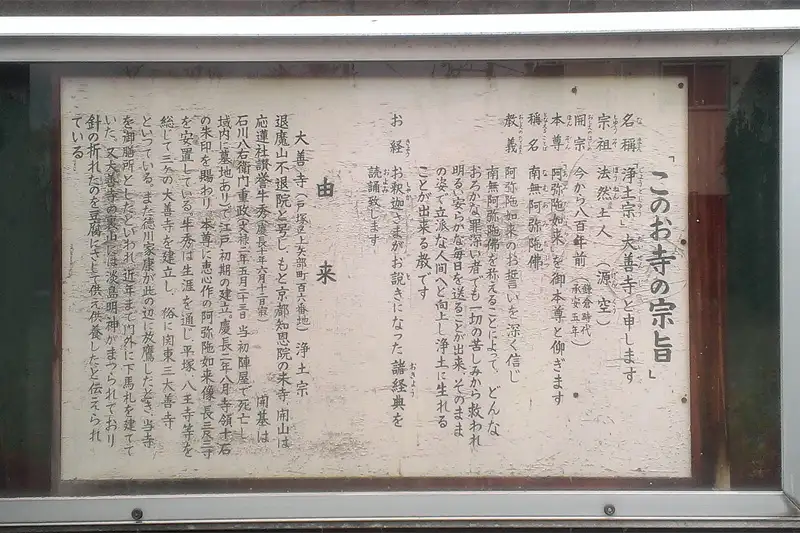 「このお寺の宗旨」
名稱「浄土宗」大善寺と申します
宗祖 法然上人(源空)
開宗 今から八百年前(鎌倉時代 承安五年)
本尊「阿弥陀如来」を御本尊と仰ぎます
稱名 南無阿弥陀佛
教義 阿弥陀如来のお誓いを深く信じ
南無阿弥陀佛を称えることによって、どんな
おろかな罪深い者でも一切の苦しみから救われ
明るい安らかな毎日を送ることが出来、そのまま
の姿で立派な人間へと向上し浄土に生れる
ことが出来る教です
お経 お釈迦さまがお説きになった諸経典を
読誦致します
由来
大善寺(戸塚区上矢部町百六番地)浄土宗
退魔山不退院と号し、もと京都知恩院の末寺、開山は
応蓮社讃誉牛秀(慶長十年六月十二日寂) 開基は
石川八右衛門重政(文禄二年五月二十三日 当初陣屋で死亡し
域内に墓地あり)で江戸初期の建立。慶長二年八月寺領十石
の朱印を賜わり、本尊に恵心作の阿弥陀如来像(長三尺三寸)
を安置している。牛秀は生涯を通じ、平塚、八王寺等を
総して三ヶの大善寺を建立し、俗に関東三大善寺
といっている。また徳川家康が此の辺に放鷹したとき、当寺
を御膳所としたといわれ、近年まで門外に下馬札を建てて
いた。又大善寺の裏山には淡島明神がまつられており
針の折れたのを豆腐にさして供え供養したと伝えられ
ている。